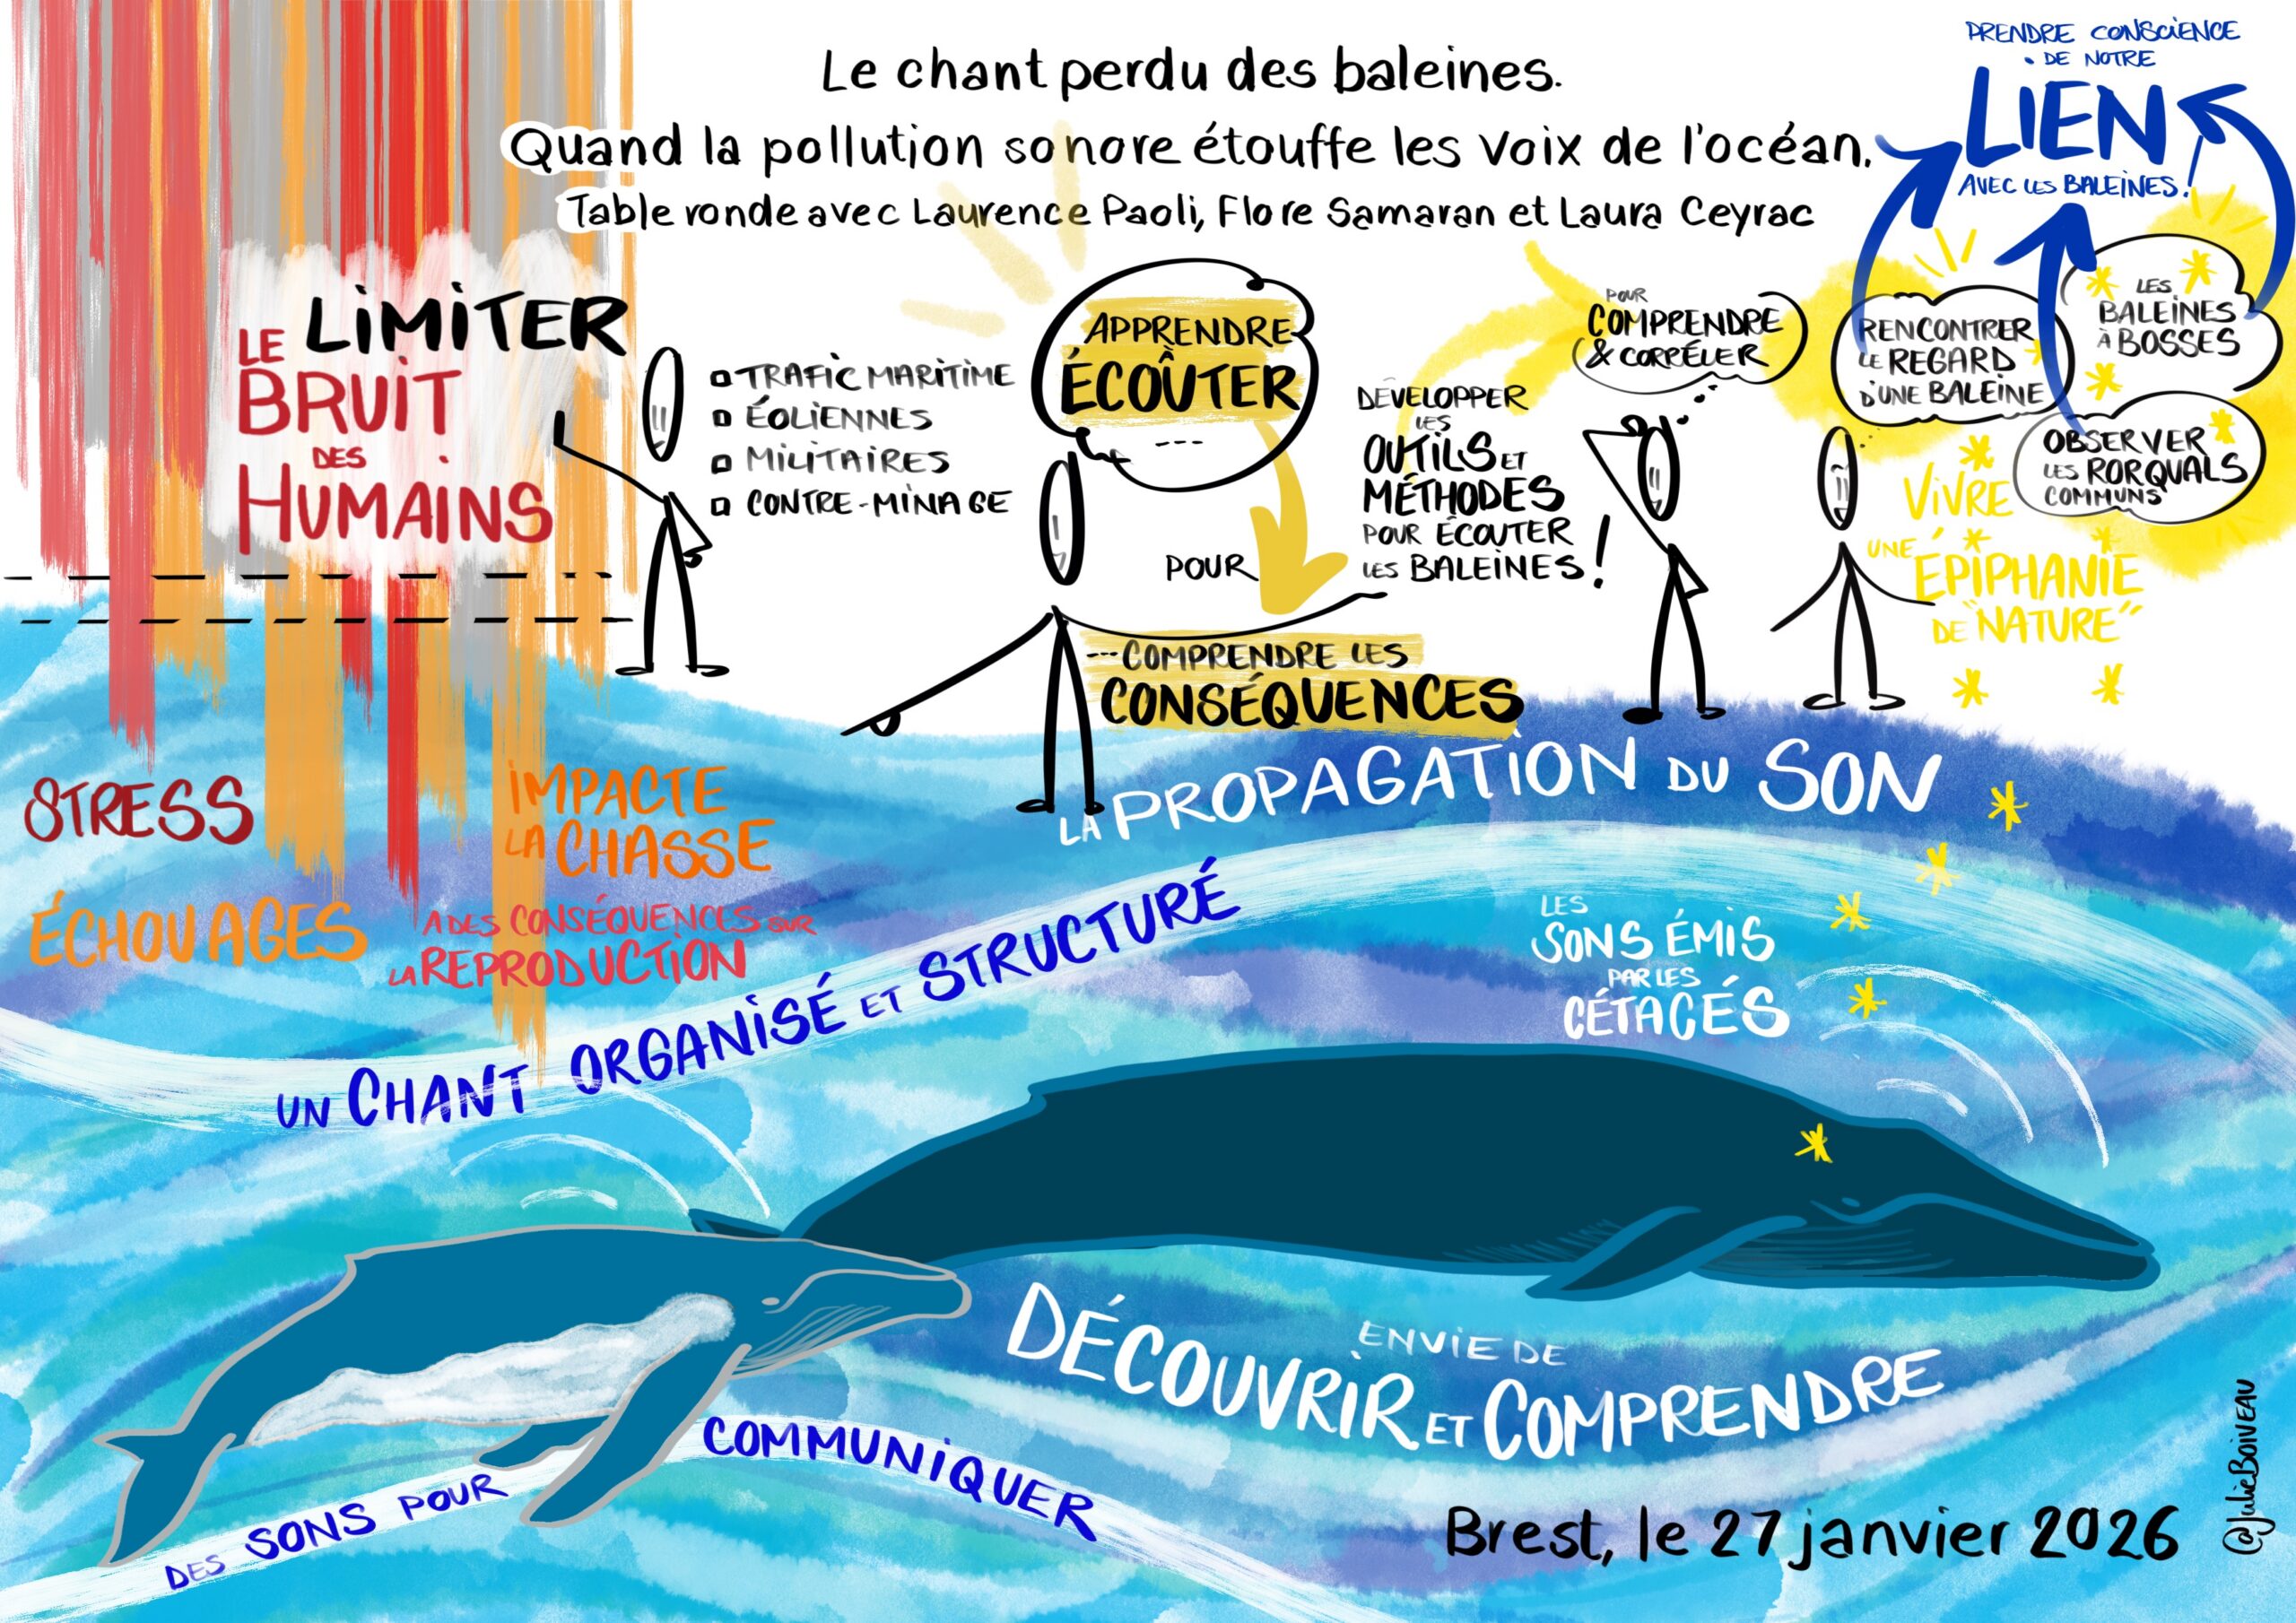 Le chant perdu des baleines.
Quand la pollution sonore étouffe les voix de l'océan.
Table ronde avec Laurence Paoli, Flore Samaran et Laura Ceyrac
PRENDRE CONSCIENCE
DE NOTRE
LIEN
AVEC LES BALEINES!
LIMITER
LE
BRUIT
DES
HUMAINS
TRAFIC MARITIME
ÉOLIENNES
MILITAIRES
CONTRE-MINAGE
APPRENDRE
À
ÉCOUTER
---
POUR
--- COMPRENDRE LES
CONSÉQUENCES
DÉVELOPPER
LES
OUTILS ET
MÉTHODES
POUR ÉCOUTER
LES BALEINES!
POUR
COMPRENDRE
& CORRÉLER
RENCONTRER
LE REGARD
D'UNE BALEINE
LES
BALEINES
À BOSSES
OBSERVER
LES RORQUALS
COMMUNS
VIVRE
UNE ÉPIPHANIE
DE "NATURE"
STRESS
IMPACTE
LA CHASSE
ÉCHOUAGES
A DES CONSÉQUENCES SUR
LA REPRODUCTION
LA PROPAGATION DU SON
UN CHANT ORGANISÉ ET STRUCTURÉ
LES
SONS ÉMIS
PAR LES
CÉTACÉS
ENVIE DE
DÉCOUVRIR ET COMPRENDRE
DES SONS POUR COMMUNIQUER
Brest, le 27 janvier 2026
@JulieBoiveau